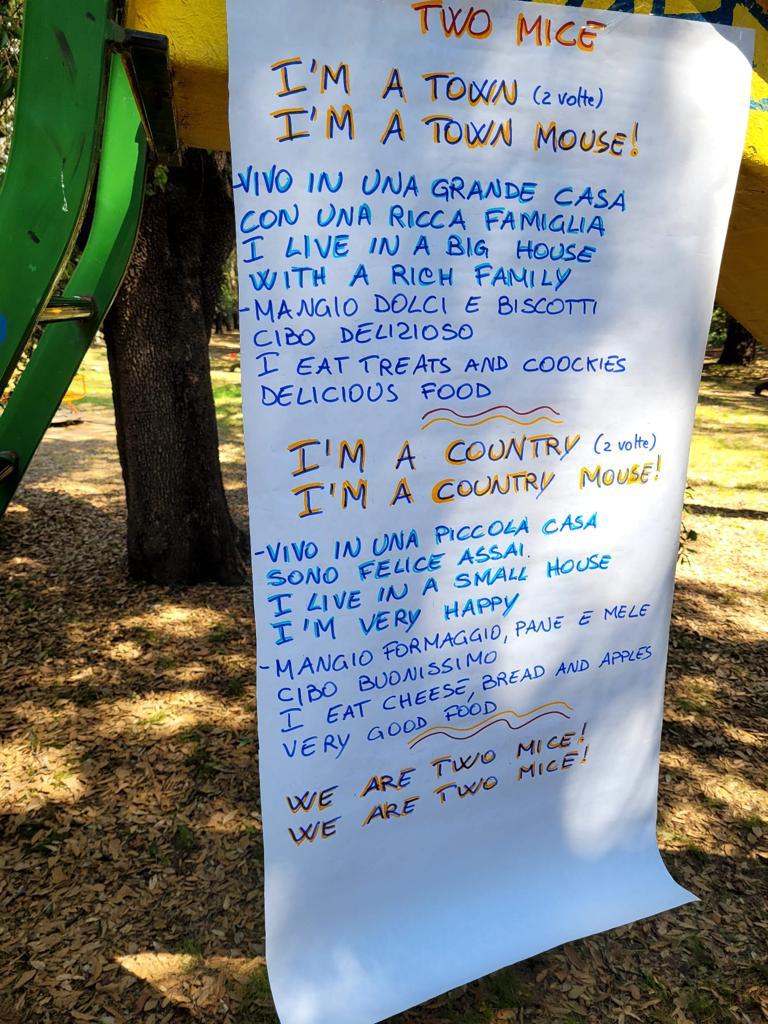 TWO MICE
I'M A TOWN (2 volte)
I'M A TOWN MOUSE!
-VIVO IN UNA GRANDE CASA
CON UNA RICCA FAMIGLIA
I LIVE IN A BIG HOUSE
WITH A RICH FAMILY
-MANGIO DOLCI E BISCOTTI
CIBO DELIZIOSO
I EAT TREATS AND COOCKIES
DELICIOUS FOOD
I'M A COUNTRY (2 volte)
I'M A COUNTRY MOUSE!
-VIVO IN UNA PICCOLA CASA
SONO FELICE ASSAI.
I LIVE IN A SMALL HOUSE
I'M VERY HAPPY
-MANGIO FORMAGGIO, PANE E MELE
CIBO BUONISSIMO
I EAT CHEESE, BREAD AND APPLES
VERY GOOD FOOD
WE ARE TWO MICE!
WE ARE TWO MICE!